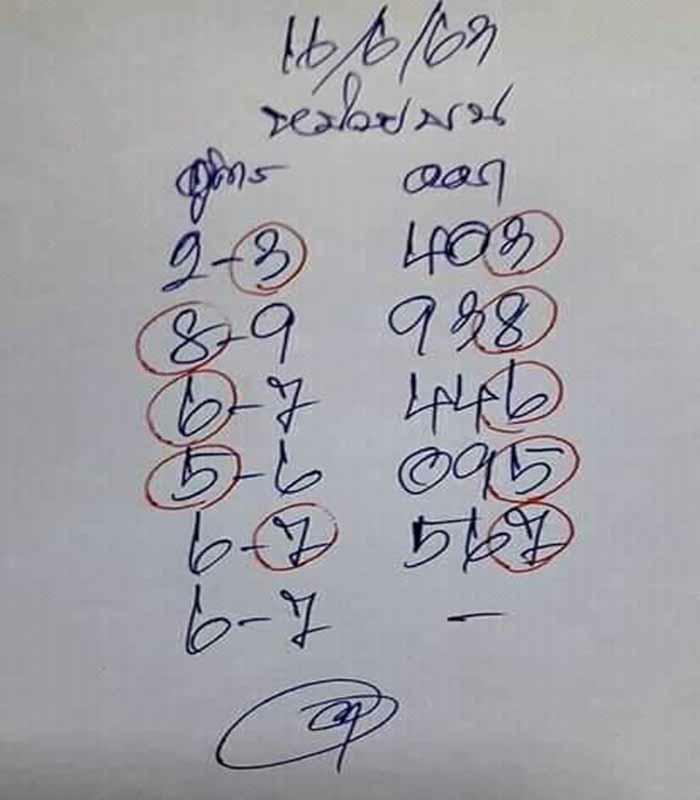 16/6/63
หน่วยบน
สูตร ออก
2-3 403
8-9 938
6-7 446
5-6 095
6-7 567
6-7 -